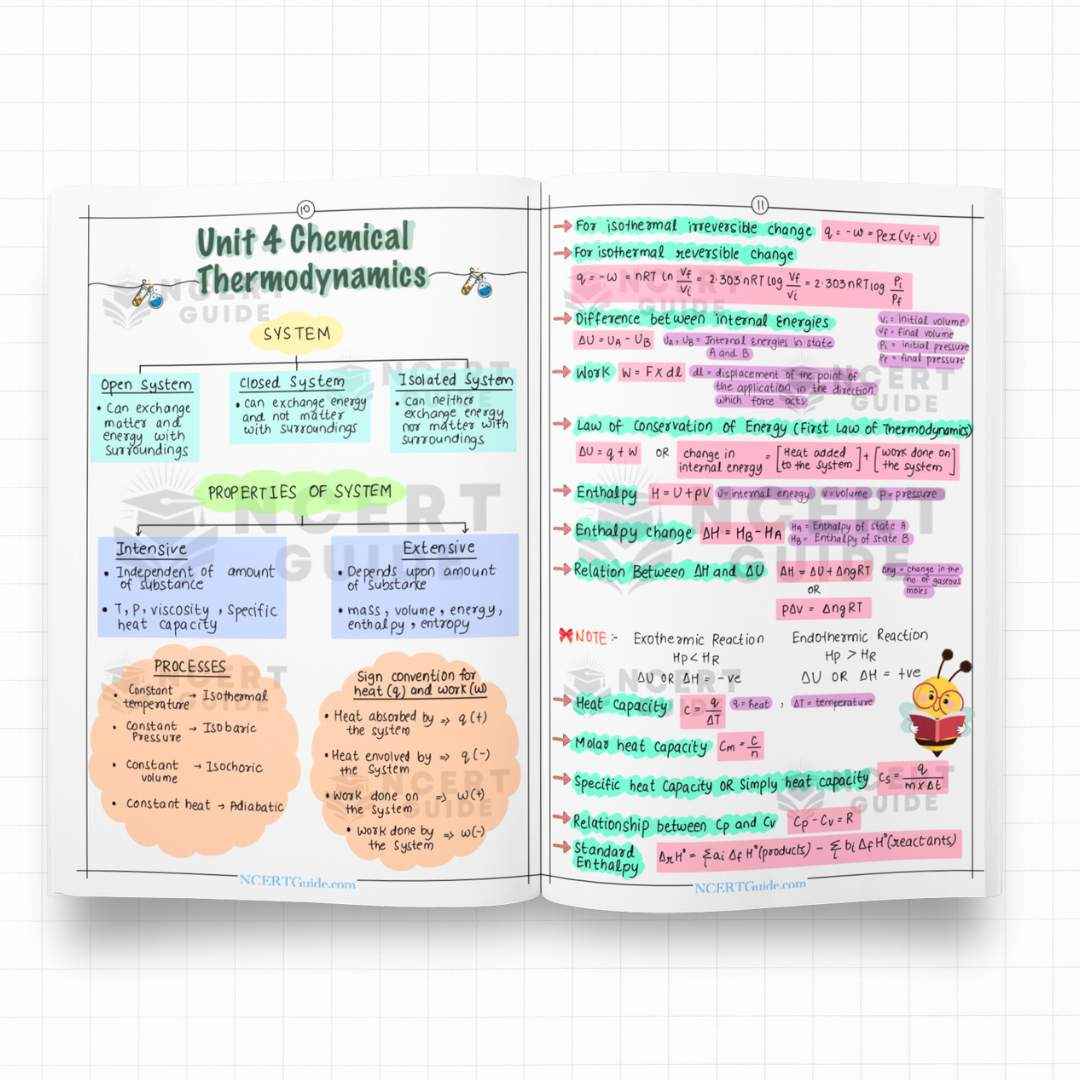 10
Unit 4 Chemical
Thermodynamics
SYSTEM
Open System
• Can exchange
matter and
energy with
surroundings
Closed System
• can exchange energy
and not matter
with surroundings
Isolated System
• can neither
exchange energy
nor matter with
surroundings
PROPERTIES OF SYSTEM
Intensive
• Independent of amount
of substance
• T, P, viscosity, specific
heat capacity
Extensive
• Depends upon amount
of substance
• mass, volume, energy,
enthalpy, entropy
PROCESSES
• Constant temperature → Isothermal
• Constant Pressure → Isobaric
• Constant volume → Isochoric
• Constant heat → Adiabatic
Sign convention for
heat (q) and work (w)
• Heat absorbed by the system ⇒ q (+)
• Heat envolved by the system ⇒ q (-)
• Work done on the system ⇒ w(+)
• Work done by the system ⇒ w(-)
NCERTGuide.com
11
→ For isothermal irreversible change q = -w = Pex (Vf - Vi)
→ For isothermal reversible change
q = -w = nRT ln Vf/Vi = 2.303 nRT log Vf/Vi = 2.303 nRT log Pi/Pf
→ Difference between internal Energies
ΔU = UA - UB UA, UB = Internal Energies in state
A and B
Vi = initial volume
Vf = final volume
Pi = initial pressure
Pf = final pressure
→ Work W = F x dl dl = displacement of the point of
the application in the direction
which force acts
→ Law of Conservation of Energy (First Law of Thermodynamics)
ΔU = q + W OR change in internal energy = [Heat added to the system] + [work done on the system]
→ Enthalpy H = U + PV U = internal energy V = volume P = pressure
→ Enthalpy change ΔH = HB - HA HA = Enthalpy of state A
HB = Enthalpy of state B
→ Relation Between ΔH and ΔU ΔH = ΔU + ΔngRT Δng = change in the
no of gaseous
moles
OR
PΔV = ΔngRT
NOTE :- Exothermic Reaction Endothermic Reaction
Hp < HR Hp > HR
ΔU OR ΔH = -ve ΔU OR ΔH = +ve
→ Heat Capacity C = q/ΔT q = heat , ΔT = temperature
→ Molar heat capacity Cm = C/n
→ Specific heat Capacity OR Simply heat capacity Cs = q/m x Δt
→ Relationship between Cp and Cv Cp - Cv = R
→ Standard Enthalpy ΔrH° = Σ ai Δf H°(products) - Σ bi Δf H°(reactants)
NCERTGuide.com
NCERT
GUIDE